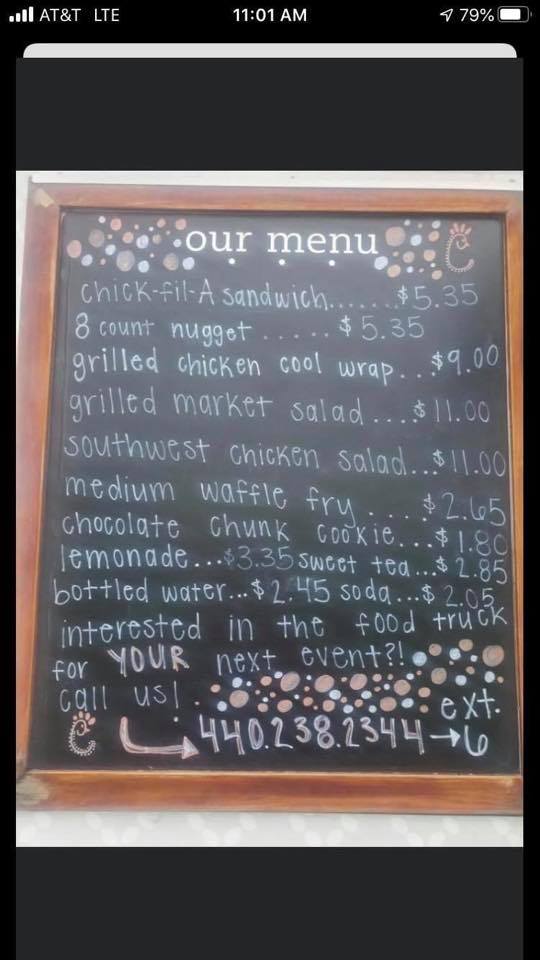 AT&T LTE 11:01 AM 79%
our menu
chick-fil-A sandwich.......$5.35
8 count nugget.....$5.35
grilled chicken cool wrap...$9.00
grilled market salad....$11.00
southwest chicken salad...$11.00
medium waffle fry....$2.65
chocolate chunk cookie...$1.80
lemonade...$3.35 sweet tea...$2.85
bottled water...$2.45 soda...$2.05
interested in the food truck
for YOUR next event?!
call us!
ext.
440.238.2344→6